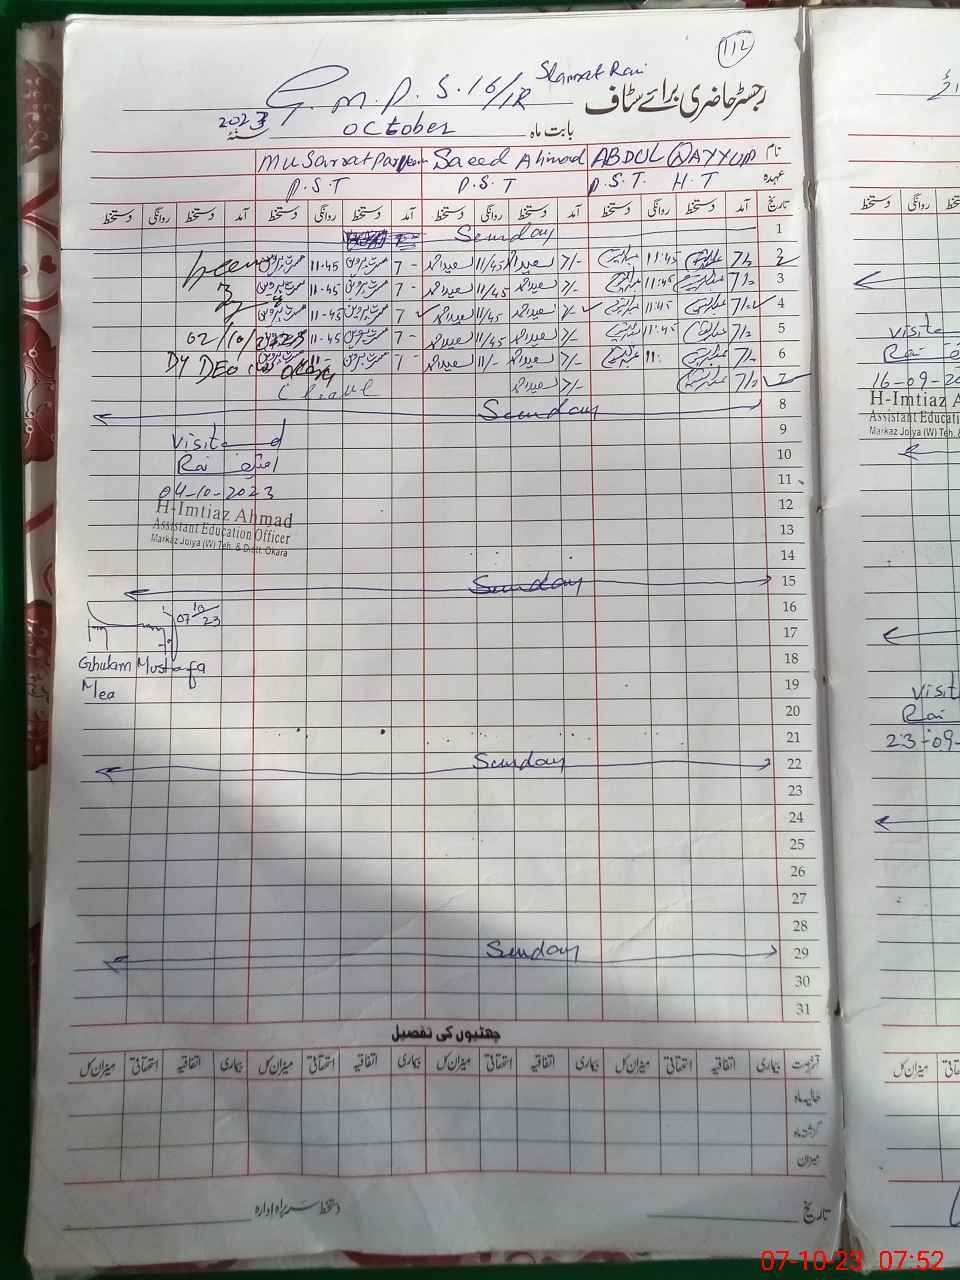 112
G. M. P. S. 16/1R
رجسٹر حاضری برائے سٹاف
2023 October بابت ماہ
نام ABDUL QAYYUM Saeed Ahmad Musarrat Parveen
عہدہ P.S.T. H.T P.S.T P.S.T
تاریخ آمد دستخط روانگی دستخط آمد دستخط روانگی دستخط آمد دستخط روانگی دستخط آمد دستخط روانگی دستخط
1 Sunday
2 7/- 11:45 7/- سعید احمد 11/45 سعید احمد 7- مسرت پروین 11-45 مسرت پروین
3 7/- 11:45 7/- سعید احمد 11/45 سعید احمد 7- مسرت پروین 11-45 مسرت پروین
4 7/- 11:45 7/- سعید احمد 11/45 سعید احمد 7- مسرت پروین 11-45 مسرت پروین
5 7/- 11:45 7/- سعید احمد 11/45 سعید احمد 7- مسرت پروین 11-45 مسرت پروین
02/10/2023
6 7/- 11: 7/- سعید احمد 11/- سعید احمد 7- مسرت پروین 11- مسرت پروین
Dy DEO
7 7/- 7/- سعید احمد
8 Sunday
9
Visited
10
Rai
11
04-10-2023
12
H-Imtiaz Ahmad
Assistant Education Officer
13
Markaz Joiya (W) Teh. & Distt. Okara
14
15 Sunday
16
07/10/23
17
18
Ghulam Mustafa
19
Mea
20
21
22 Sunday
23
24
25
26
27
28
29 Sunday
30
31
چھٹیوں کی تفصیل
بیماری اتفاقیہ استحقاقی میزان کل بیماری اتفاقیہ استحقاقی میزان کل بیماری اتفاقیہ استحقاقی میزان کل بیماری اتفاقیہ استحقاقی میزان کل
حالیہ ماہ
گزشتہ ماہ
میزان
تاریخ دستخط سربراہ ادارہ
Visite
Rai
16-09-20
H-Imtiaz A
Assistant Educatio
Markaz Joiya (W) Teh. &
Visit
Rai
23-09-
میزان کل
07-10-23 07:52